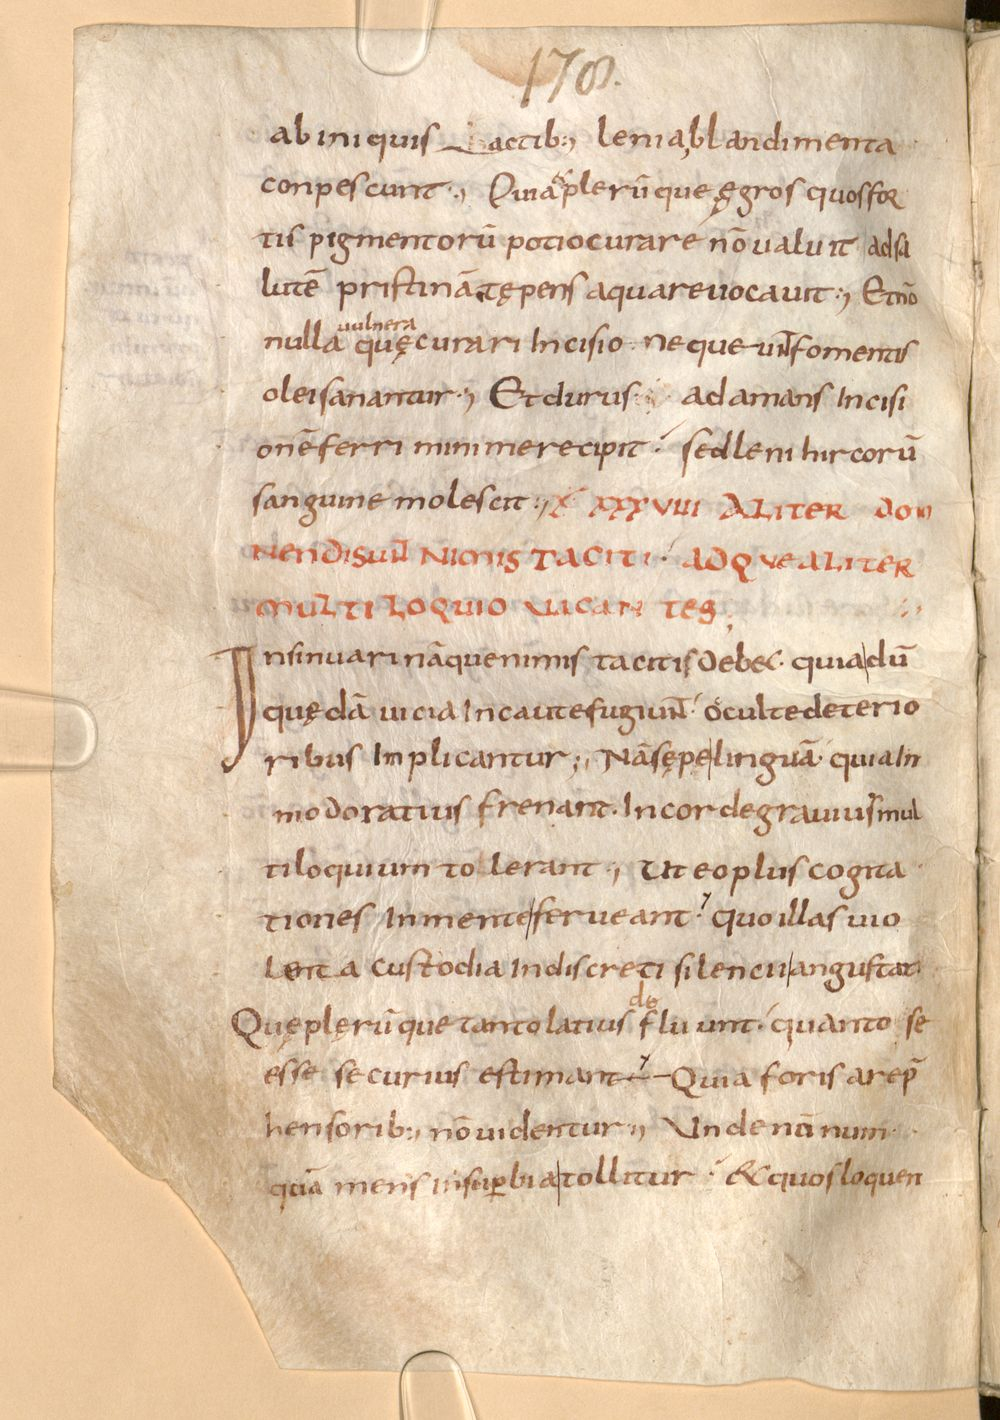 178.
ab iniquis actib:, leni ablandimenta
conpescunt:, Quia & plerūque ęgros quos for
tis pigmentorū potio curare nō valuit ad sa
lutē pristinā tępens aqua reuocauit:, Et nō
uulnera
nulla quę curari Incisione nequeunt fomentis
olei sanantur:, Et durus adamans Incisi
onē ferri minime recipit sed leni hircorū
sanguine molescit:, XXXVIII ALITER DOM
NENDI SUNT NIMIS TACITI. ADQVE ALITER
MULTILOQUIO VACANTES;
Insinuari nāque nimis tacitis debet. quia dū
quędā uicia Incaute fugiunt. oculte deterio
ribus Inplicantur;, Nā sępe linguā quia In
modoratius frenant. In corde grauius mul
tiloquium tollerant:, Ut eo plus cogita
tiones In mente ferueant. quo illas uio
lenta custodia Indiscreti silencii angustat.
de
Quę plęrūque tanto latius fluunt. quanto se
esse securius estimant Quia foris a rep̄
hensorib:, nō uidentur:, Unde nā num
quā mens in suꝑbia tollitur. & quos loquen